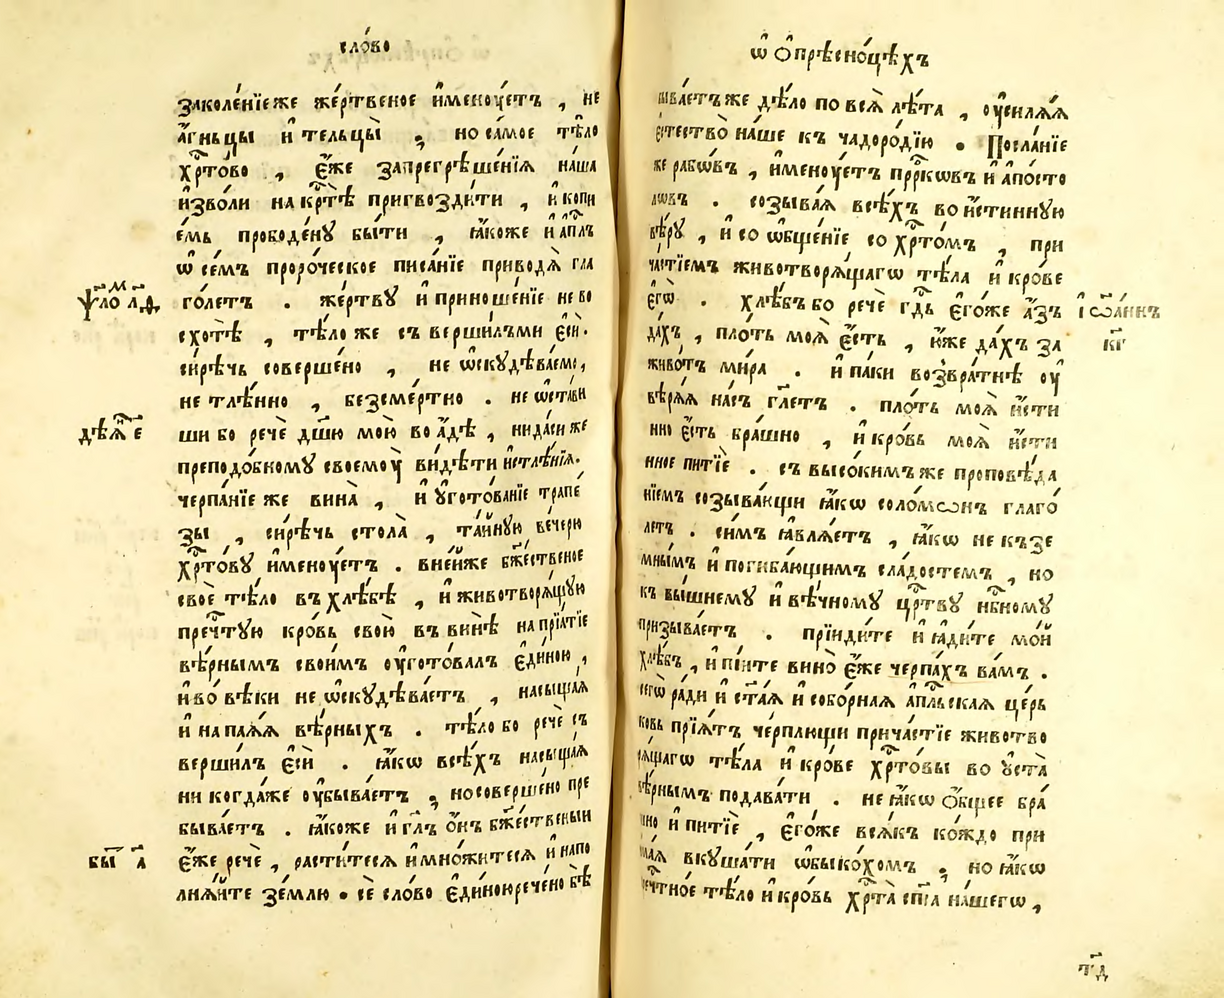 сло́во
заколе́нїе же же́ртвеное и҆менꙋ́етъ , не
а҆́гньцы и҆ тельцы̀ , но са́мое тѣ́ло
хрⷭ҇то́во , є҆́же за прегрѣше́нїѧ на́ша
и҆зво́ли на крⷭ҇тѣ̀ пригвозди́ти , и҆ копи
е́мь прободе́нꙋ бы́ти , ꙗ҆́коже и҆ а҆пⷭ҇лъ
ѡ҆ се́мъ проро́ческое писа́нїе приводѧ̀ гла
го́летъ . же́ртвꙋ и҆ приноше́нїе не во
схотѣ̀ , тѣ́ло же съвершилъ ми є҆сѝ .
си́рѣчь соверше́но , не ѡ҆скꙋдѣва́емо ,
не тлѣ́нно , безсме́ртно . не ѡ҆ста́ви
ши бо речѐ дш҃ю мою̀ во а҆́дѣ , ни да́си же
преподо́бномꙋ своемоу̀ ви́дѣти и҆стлѣ́нїѧ .
черпа́нїе же вина̀ , и҆ ᲂу҆гото́ванїе трапе́
зы , си́рѣчь стола̀ , та́йнꙋю ве́черю
хрⷭ҇то́вꙋ и҆менꙋ́етъ . в не́йже бж҃е́ственое
своѐ тѣ́ло въ хлѣ́бѣ , и҆ животворѧ́щꙋю
преч҇тꙋю кро́вь свою̀ въ винѣ̀ на прїѧ́тїе
вѣ́рнымъ свои́мъ ᲂу҆гото́валъ є҆ди́ною ,
и҆ во́ вѣки не ѡ҆скꙋдѣва́етъ , насыща́ѧ
и҆ напаѧ́ѧ вѣ́рныхъ . тѣ́ло бо речѐ съ
верши́лъ є҆сѝ . ꙗ҆́кѡ всѣ́хъ насыща́ѧ
ни когда́же ᲂу҆быва́етъ , но соверше́но пре
быва́етъ . ꙗ҆́коже и҆ гл҃ъ ѻ҆́нъ бж҃е́ственыи
є҆́же речѐ , расти́тесѧ и҆ мно́житесѧ и҆ напо
лнѧ́йте зе́млю . сѐ сло́во є҆ди́ною рече́но бѣ̀
ѱало м л,ѳ
дѣѧ҆́н е
бытⷭ҇ а҃
ѡ҆ Ѻ҆прѣсно́цѣхъ
ыва́етъ же дѣ́ло по всѧ̀ лѣ́та , ᲂу҆силѧ́ѧ
є҆стество̀ на́ше къ чадоро́дїю . Посла́нїе
же рабѡ́въ , и҆менꙋ́етъ прⷪ҇ркѡвъ и҆ а҆по́сто
лѡвъ . созыва́ѧ всѣ́хъ во и҆́стиннꙋю
вѣ́рꙋ , и҆ со ѡ҆бще́нїе со хрⷭ҇то́мъ , при
ча́стїемъ животворѧ́щагѡ тѣ́ла и҆ кро́ве
є҆гѡ̀ . хлѣ́бъ бо речѐ гдⷭ҇ь є҆го́же а҆́зъ
да́хъ , пло́ть моѧ̀ є҆́сть , ю҆́же да́хъ за
живо́тъ ми́ра . и҆ па́ки возвра́тнѣ ᲂу҆
вѣрѧ́ѧ на́съ гл҃етъ . пло́ть моѧ̀ и҆́сти
нно є҆́сть бра́шно , и҆ кро́вь моѧ̀ и҆́сти
нное питїѐ . съ высо́кимъ же проповѣ́да
нїемъ созыва́ющи ꙗ҆́кѡ соломѡ́нъ глаго́
летъ . си́мъ ꙗ҆влѧ́етъ , ꙗ҆́кѡ не къ зе
мны́мъ и҆ погиба́ющимъ сла́достемъ , но
къ вы́шнемꙋ и҆ вѣ́чномꙋ црⷭ҇твꙋ нбⷭ҇номꙋ
призыва́етъ . прїиди́те и҆ ꙗ҆ди́те мо́й
хлѣ́бъ , и҆ пі́йте вино̀ є҆́же черпа́хъ ва́мъ .
сегѡ̀ ра́ди и҆ ст҃а́ѧ и҆ собо́рнаѧ а҆пⷭ҇льскаѧ це́рь
ковь прїѧ́тъ че́рплющи прича́стїе животво
рѧ́щагѡ тѣ́ла и҆ кро́ве хрⷭ҇то́вы во ᲂу҆ста̀
вѣ́рнымъ подава́ти . не ꙗ҆́кѡ ѻ҆́бщее бра́
шно и҆ питїѐ , є҆го́же всѧ́къ ко́ждо при
ма́ѧ вкꙋша́ти ѡ҆быко́хомъ , но ꙗ҆́кѡ
пречⷭ҇тно́е тѣ́ло и҆ кро́вь хрⷭ҇та̀ сп҃са на́шегѡ ,
і҆ѡа́ннъ
к҃г
т҃д